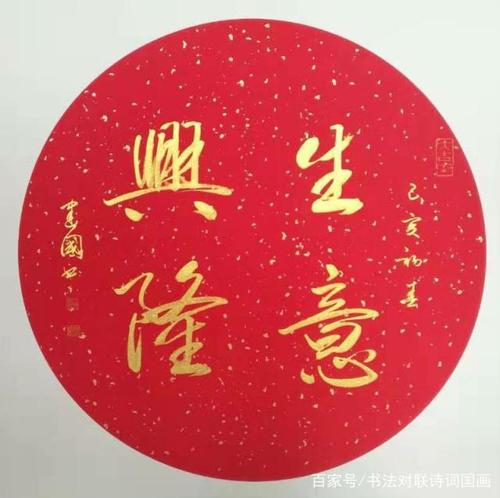 己亥初春
生意
興隆
建國书
百家号/书法对联诗词国画